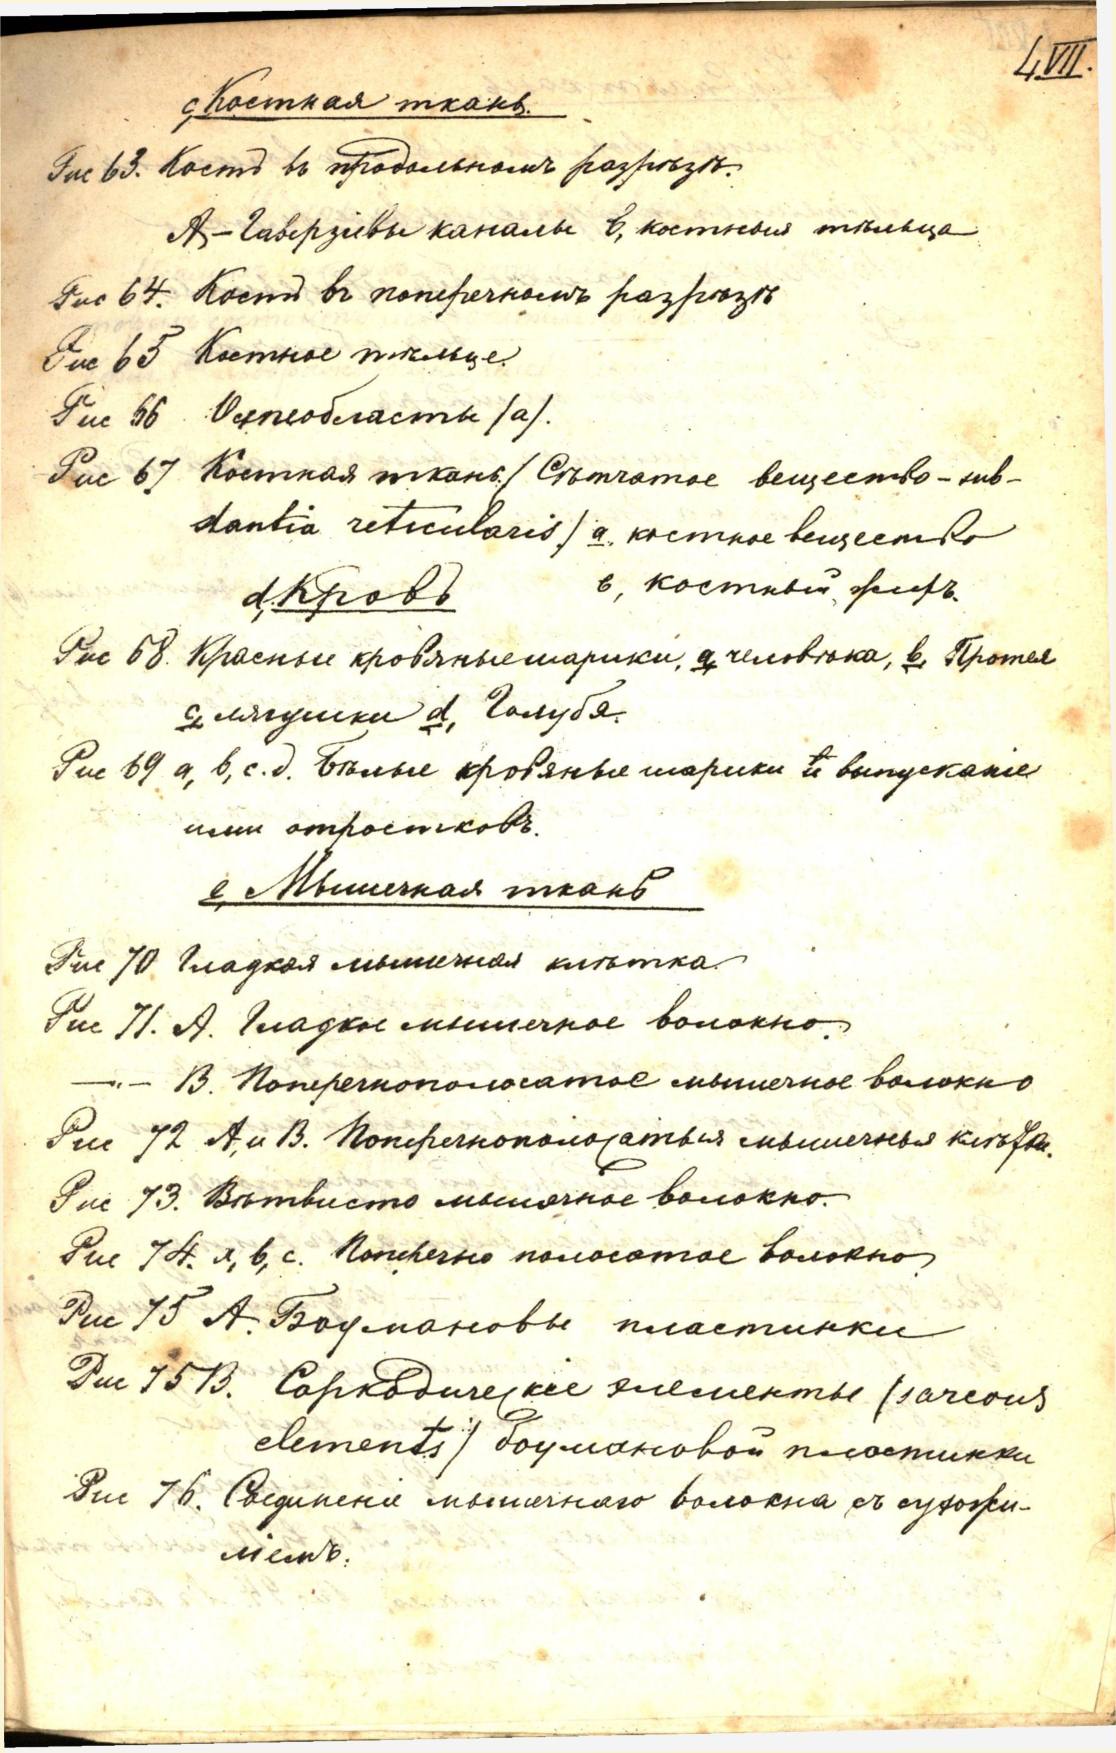 LVII.
c, Костная ткань.
Рис 63. Кость въ продольномъ разрѣзѣ.
А,– Гаверзіевы каналы в, костныя тѣльца
Рис 64. Кость въ поперечномъ разрѣзѣ
Рис 65 Костное тѣльце.
Рис 66 Остеобласты /а/.
Рис 67 Костная ткань / Сѣтчатое вещество – sub-
stantia reticularis / a, костное вещество
в, костный жиръ.
d, Кровь
Рис 68. Красные кровяные шарики, a, человѣка, b, Протея
c, лягушки d, Голубя.
Рис 69 a, b, c. d. Бѣлые кровяные шарики и выпусканіе
ими отростковъ.
e, Мышечная ткань
Рис 70 Гладкая мышечная клѣтка.
Рис 71. А. Гладкое мышечное волокно.
—„— В. Поперечнополосатое мышечное волокно
Рис 72 А, и В. Поперечнополосатыя мышечныя клѣтки.
Рис 73. Вѣтвисто мышечное волокно.
Рис 74. a, b, c. Поперечно полосатое волокно.
Рис 75 А. Боумановы пластинки
Рис 75 В. Саркодическіе элементы (sarcous
elements) боумановой пластинки
Рис 76. Соединеніе мышечнаго волокна съ сухожи-
ліемъ.